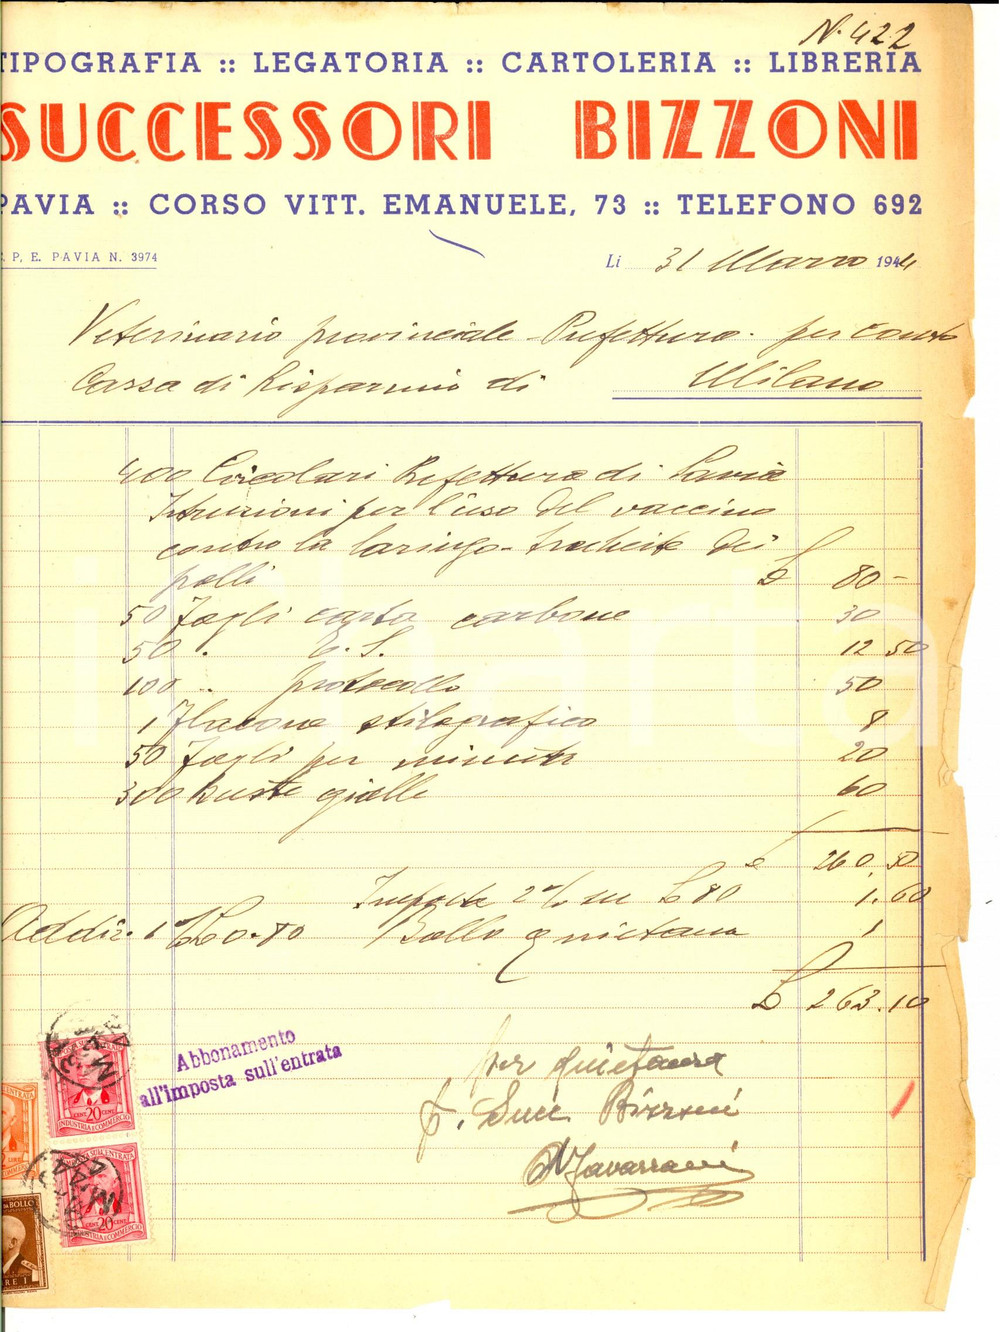 N. 422
TIPOGRAFIA :: LEGATORIA :: CARTOLERIA :: LIBRERIA
SUCCESSORI BIZZONI
PAVIA :: CORSO VITT. EMANUELE, 73 :: TELEFONO 692
C. P. E. PAVIA N. 3974
Li 31 Marzo 1944
Veterinario provinciale Prefettura - per conto
Cassa di Risparmio di Milano
400 Circolari Prefettura di Pavia
Istruzioni per l'uso del vaccino
contro la laringo-tracheite dei
polli £ 80 -
50 Fogli carta carbone 30
50 " E.S. 12 50
100 " protocollo 50
1 Flacone stilografico 8
50 Fogli per minuta 20
300 Buste gialle 60
£ 260,50
Imposta 2% su £ 80 1.60
Addiz. £ 0.80 Bollo quietanza 1
£ 263.10
Abbonamento
all'imposta sull'entrata
per quietanza
p. Succ Bizzoni
20 CENT.
INDUSTRIA E COMMERCIO
CENT. 20 CENT.
INDUSTRIA E COMMERCIO
BOLLO
LIRE 1